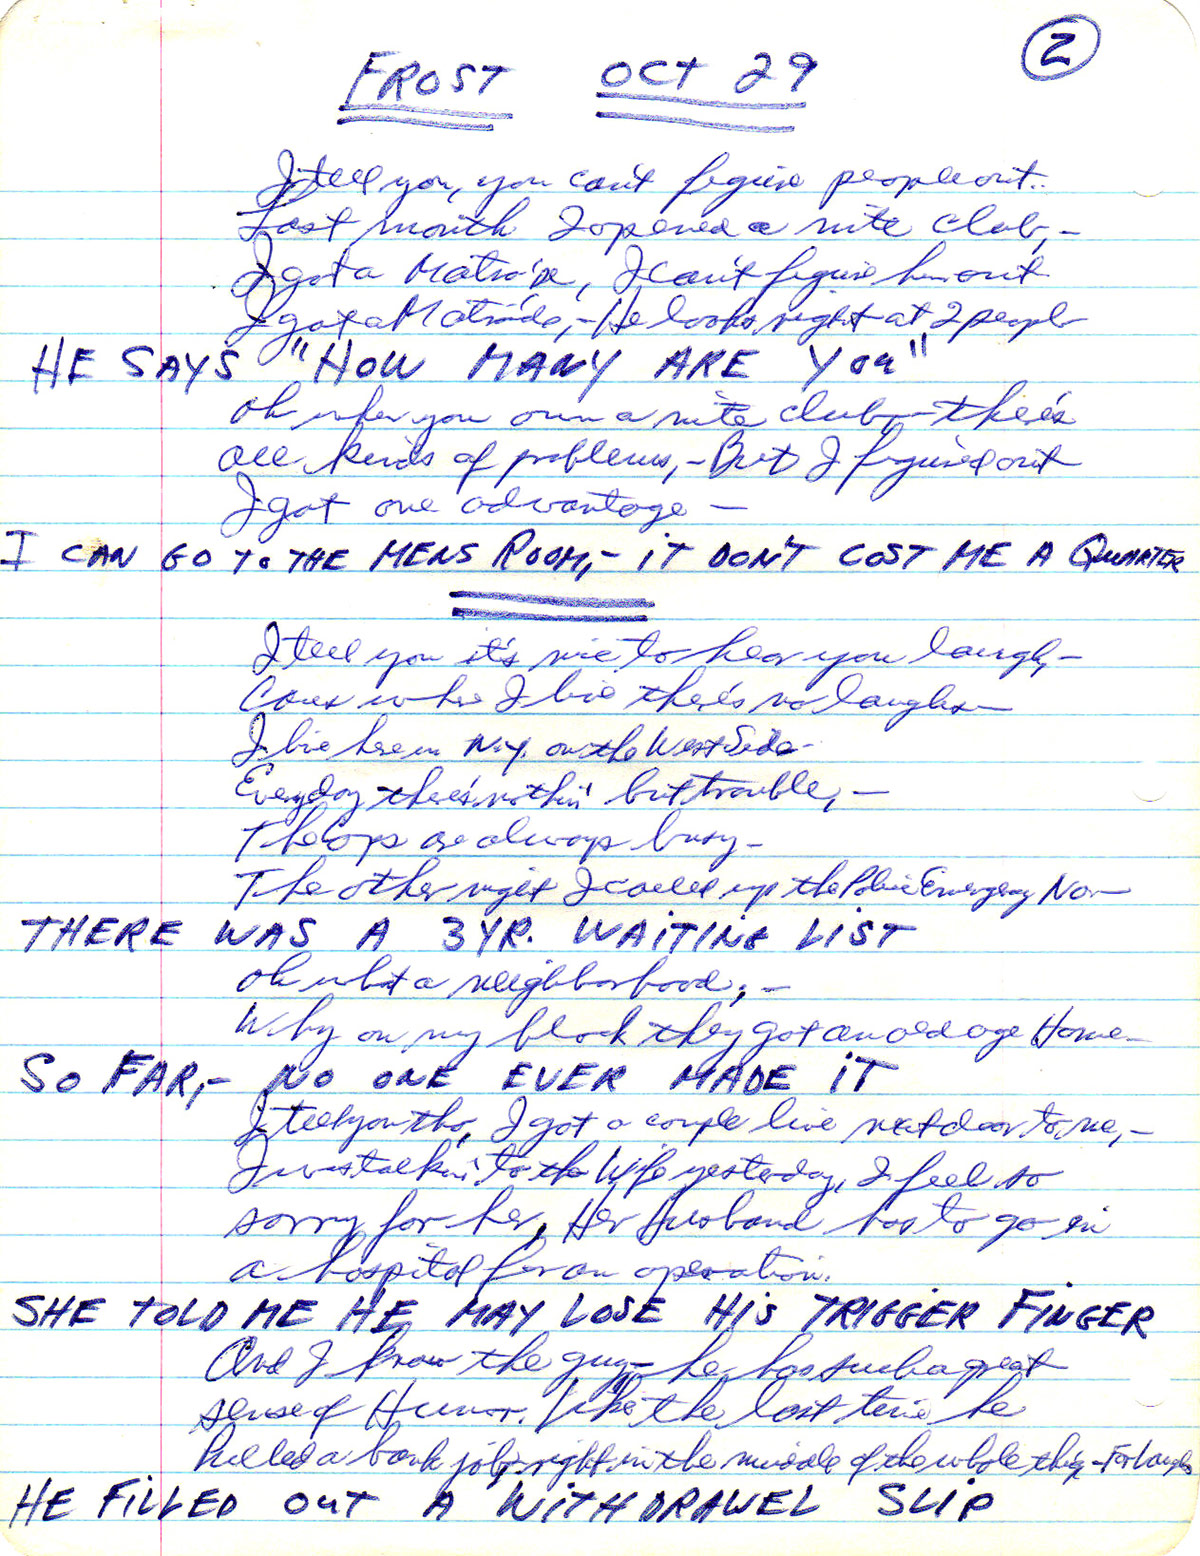 2
FROST OCT 29
I tell you, you can't figure people out..
Last month I opened a nite club,-
I got a Matra'de, I can't figure him out
I got a Matra'de,- He looks right at 2 people
HE SAYS "HOW MANY ARE You"
oh when you own a nite club,- there's
all kinds of problems,- But I figured out
I got one advantage -
I CAN GO To THE MENS ROOM,- iT DON'T COST ME A QUARTER
I tell you it's nice to hear you laugh,-
Caus where I live there's no laughs-
I live here in N.Y. on the West Side-
Everyday there's nothin' but trouble,-
The cops are always busy-
The other night I called up the Police Emergency No-
THERE WAS A 3YR. WAITING LIST
oh what a neighborhood,-
Why on my block they got an old age Home-
SO FAR,- NO ONE EVER MADE iT
I tell you tho, I got a couple live next door to me,-
I was talkin' to the Wife yesterday, I feel so
sorry for her, Her Husband has to go in
a hospital for an operation.
SHE TOLD ME HE MAY LOSE HIS TRIGGER FINGER
And I know the guy- he has such a great
sense of Humor. Like the last time he
Pulled a bank job, right in the middle of the whole thing - For Laughs
HE FILLED OUT A WITHDRAWEL SLIP